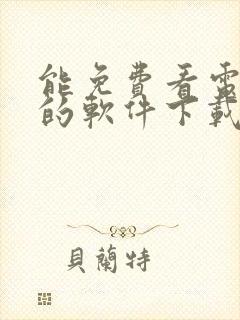 能免費看電
的軟件下載
貝蘭特